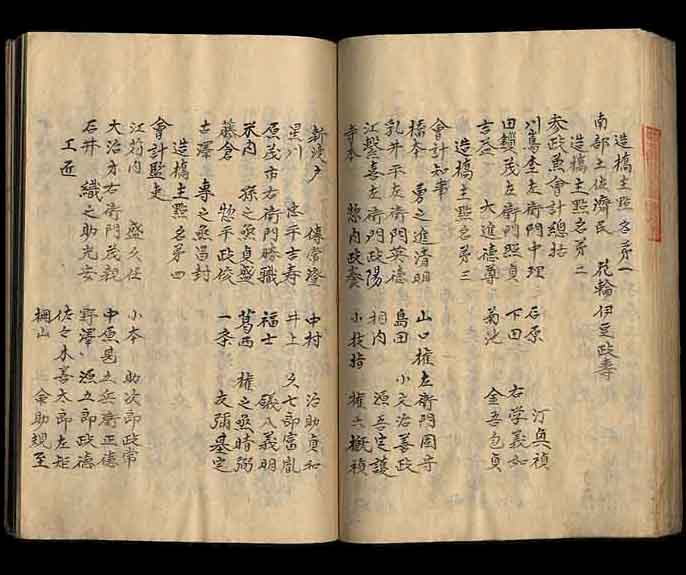 造橋主點名第一
南部土佐濟民　花輪伊豆政壽
造橋主點名第二
参政兼會計總括
川島杢左衛門中理　石原　汀奥禎
田鎖茂左衛門照貞　下田　右学義如
吉益　大進德尊　菊池　金吾包貞
造橋主點名第三
會計知事
橋本　勇之進清明　山口權左衛門固守
乳井平左衛門英德　島田　小文治善政
江釣喜左衛門政陽　相内　源吾定護
寺本　惣内政養　小枝指　權六㮣禎
新渡戸　傳常澄　中村　治助貞和
星川　忠平吉寿　井上　久七郎富胤
原茂市右衛門勝職　福士　儀八義明
米内　孫之丞貞盛　葛西　權之丞晴弼
藤倉　惣平政俊　一条　友彌基定
古澤　專之丞昌封
造橋主點名第四
會計監吏
江苅内　盛久任　小本　助次郎政常
大治才右衛門茂親　中原　兵衛正德
石井　織之助光安　野澤　源五郎政德
工匠　佐々木善太郎左矩
横山　金助規至